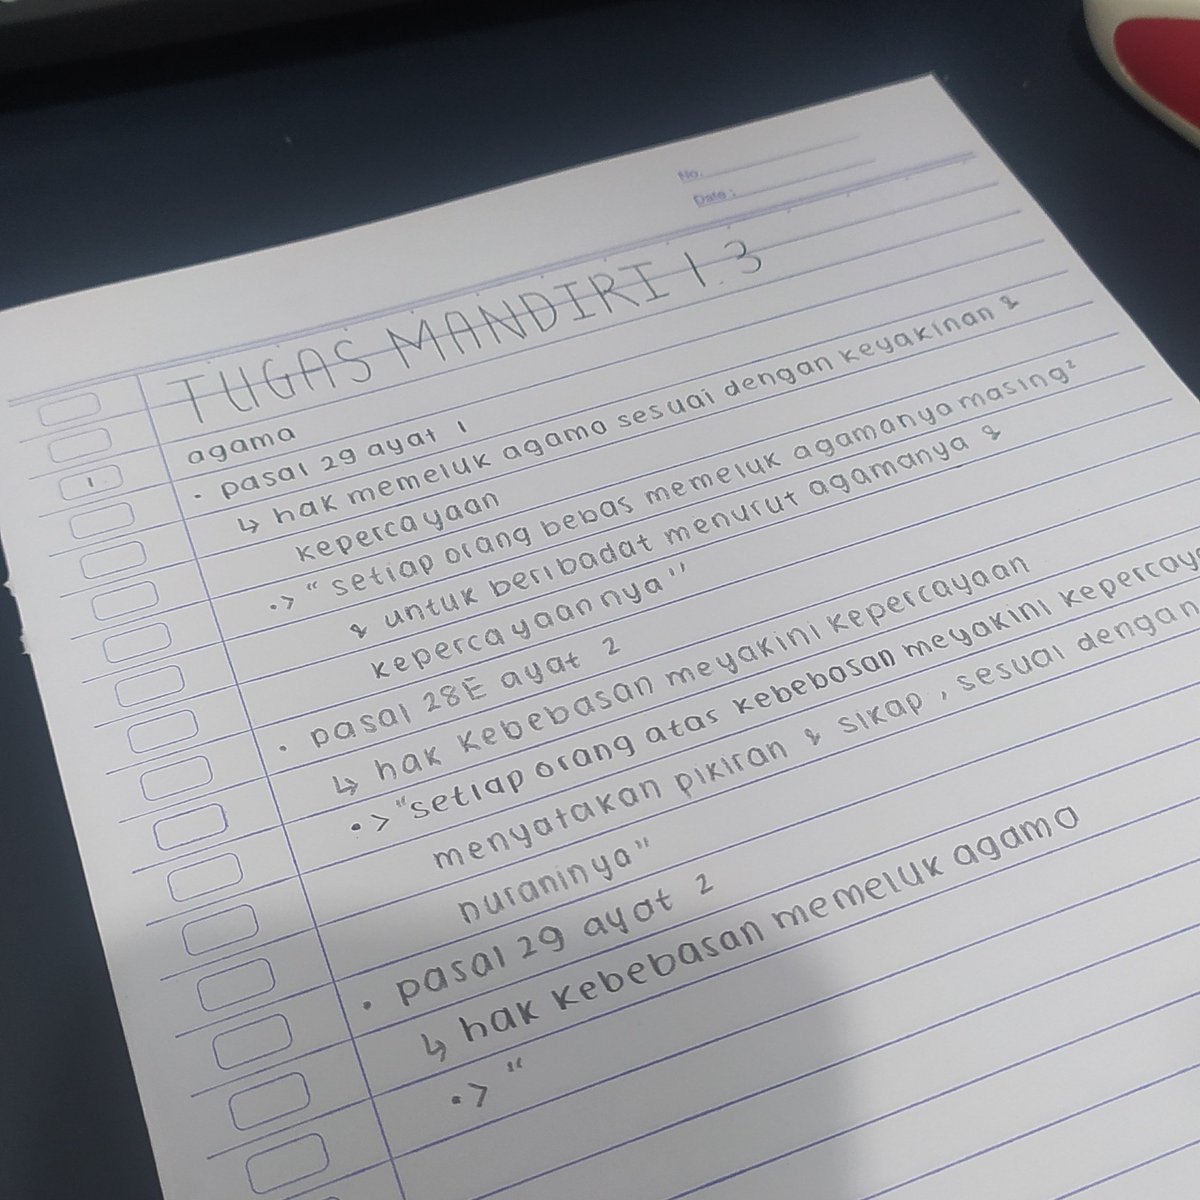 No.
Date :
TUGAS MANDIRI 1.3
agama
1. • pasal 29 ayat 1
↳ hak memeluk agama sesuai dengan keyakinan &
kepercayaan
•> " setiap orang bebas memeluk agamanya masing²
& untuk beribadat menurut agamanya &
kepercayaannya"
• pasal 28E ayat 2
↳ hak kebebasan meyakini kepercayaan
•> "setiap orang atas kebebasan meyakini
menyatakan pikiran & sikap, sesuai dengan
nuraninya"
• pasal 29 ayat 2
↳ hak kebebasan memeluk agama
•> "